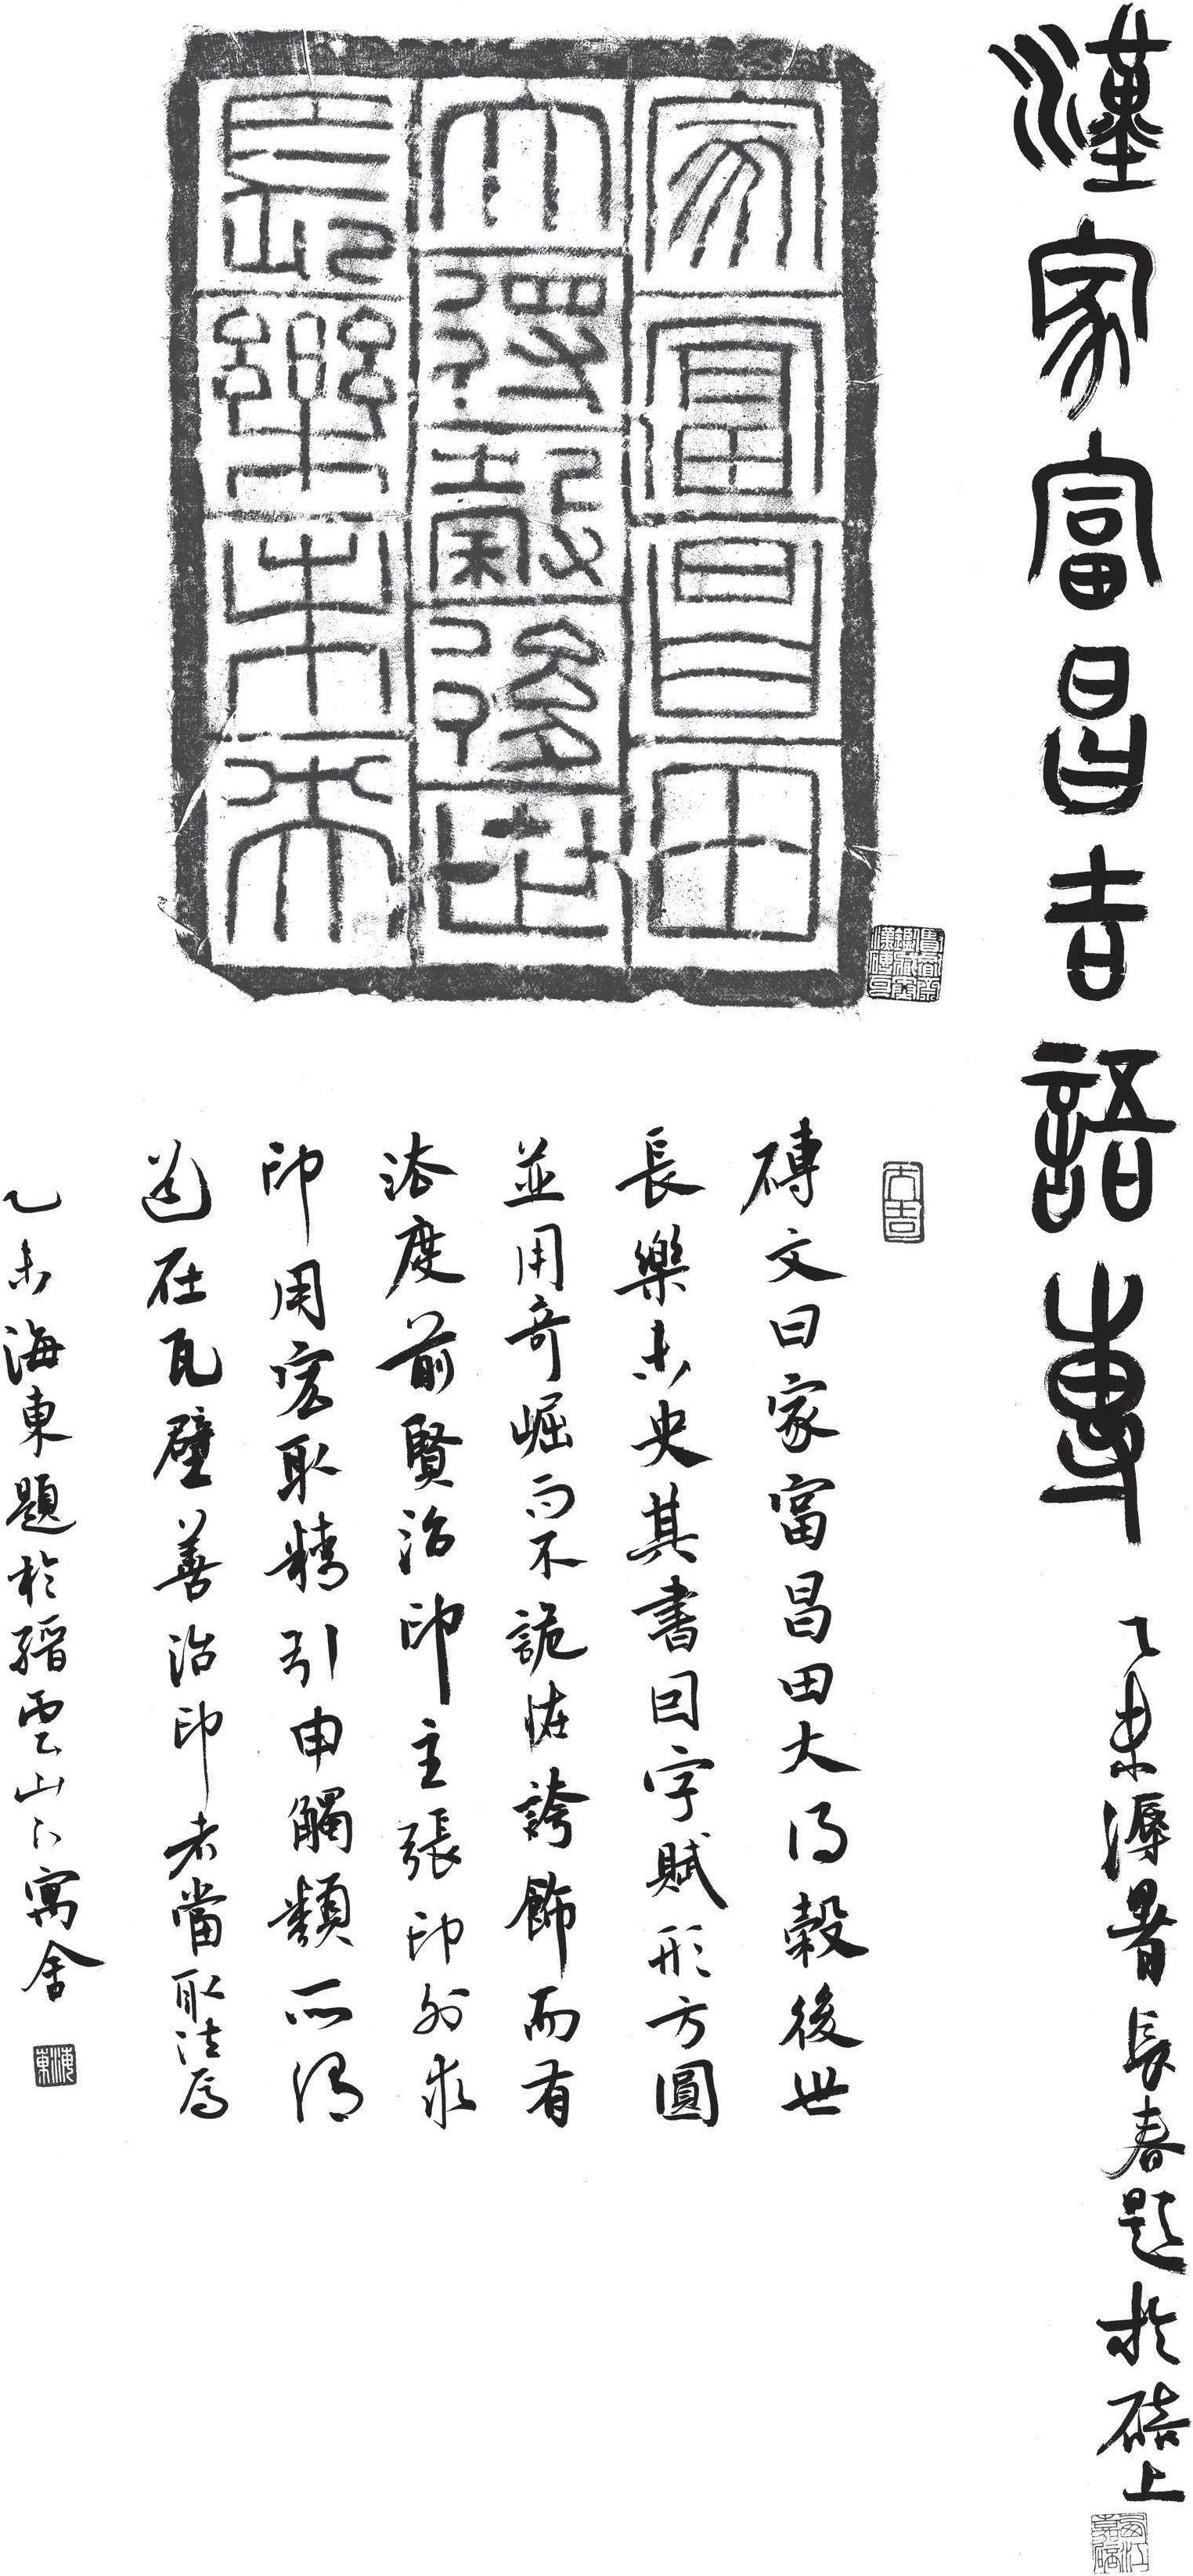 漢家富昌吉語專
乙未溽暑長春題於碚上
家富昌田
大得穀後世
長樂未央
大吉
磚文曰家富昌田大得穀後世
長樂未央其書因字賦形方圓
並用奇崛而不詭怪誇飾而有
法度前賢治印主張印外求
印用宏取精引申觸類所謂
道在瓦甓善治印者當取法焉
乙未海東題於縉雲山下寓舍
海東